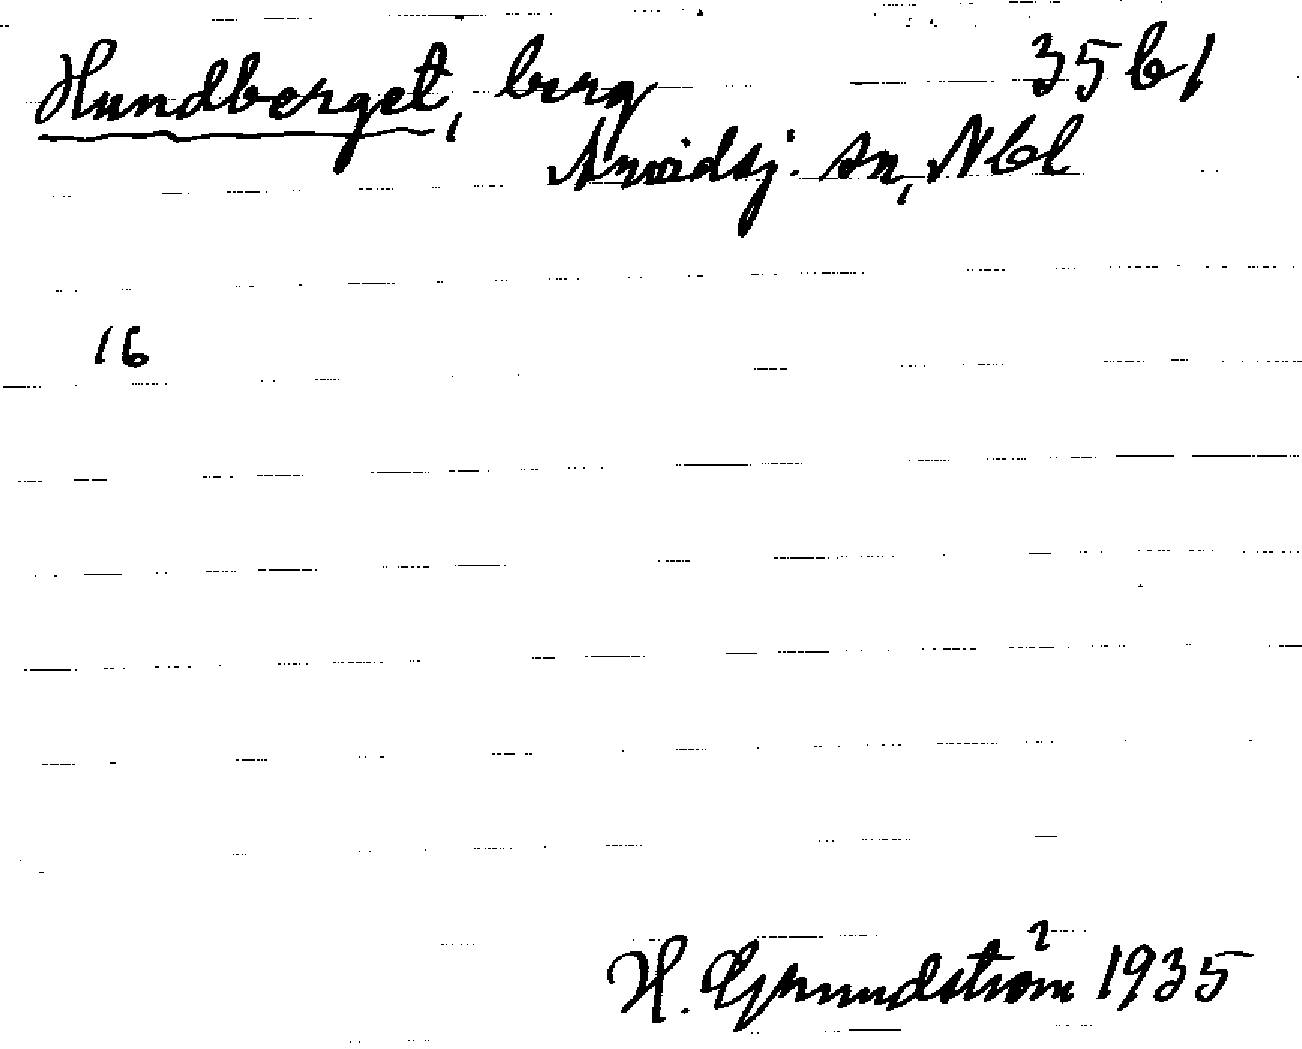 Hundberget, berg 35 b 1
Arvidsj. sn, Nbl
16
H. Grundström 1935